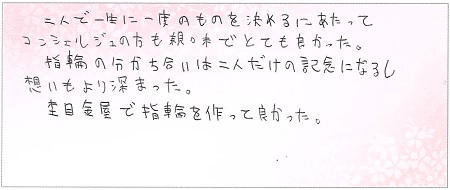 二人で一生に一度のものを決めるにあたって
コンシェルジュの方も親味でとても良かった。
指輪の分かち合いは二人だけの記念になるし
想いもより深まった。
杢目金屋で指輪を作って良かった。